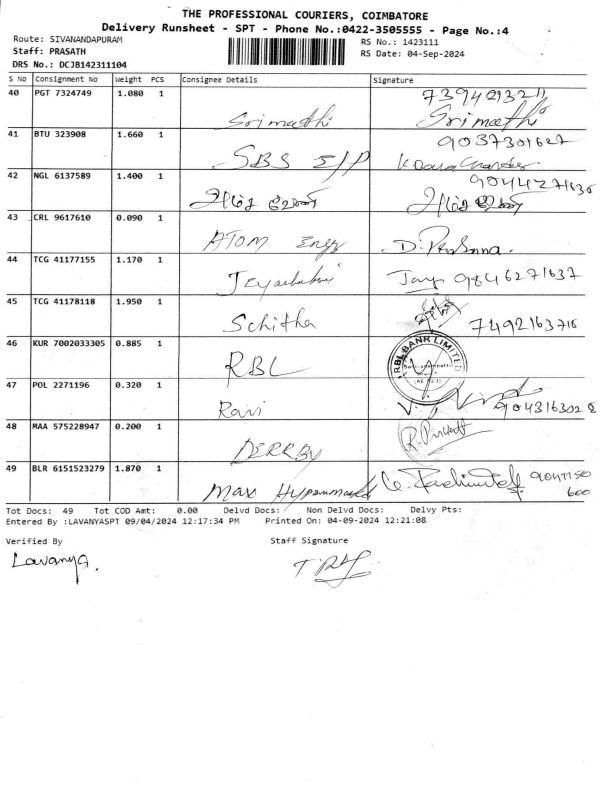 THE PROFESSIONAL COURIERS, COIMBATORE
Delivery Runsheet - SPT - Phone No.:0422-3505555 - Page No.:4
Route: SIVANANDAPURAM
RS No.: 1423111
Staff: PRASATH
RS Date: 04-Sep-2024
DRS No.: DCJB142311104
S No Consignment No Weight PCS Consignee Details Signature
40 PGT 7324749 1.080 1 Srimathi Srimathi
41 BTU 323908 1.660 1 SBS 9037301627
42 NGL 6137589 1.400 1 9044271636
43 CRL 9617610 0.090 1 ATOM
44 TCG 41177155 1.170 1 9846271637
45 TCG 41178118 1.950 1 Schitha 7492163716
46 KUR 7002033305 0.885 1 RBL RBL BANK LIMITED
47 POL 2271196 0.320 1 Ravi
48 MAA 575228947 0.200 1
49 BLR 6151523279 1.870 1 Max
Tot Docs: 49 Tot COD Amt: 0.00 Delvd Docs: Non Delvd Docs: Delvy Pts:
Entered By :LAVANYASPT 09/04/2024 12:17:34 PM Printed On: 04-09-2024 12:21:08
Verified By Staff Signature
Lavanya.